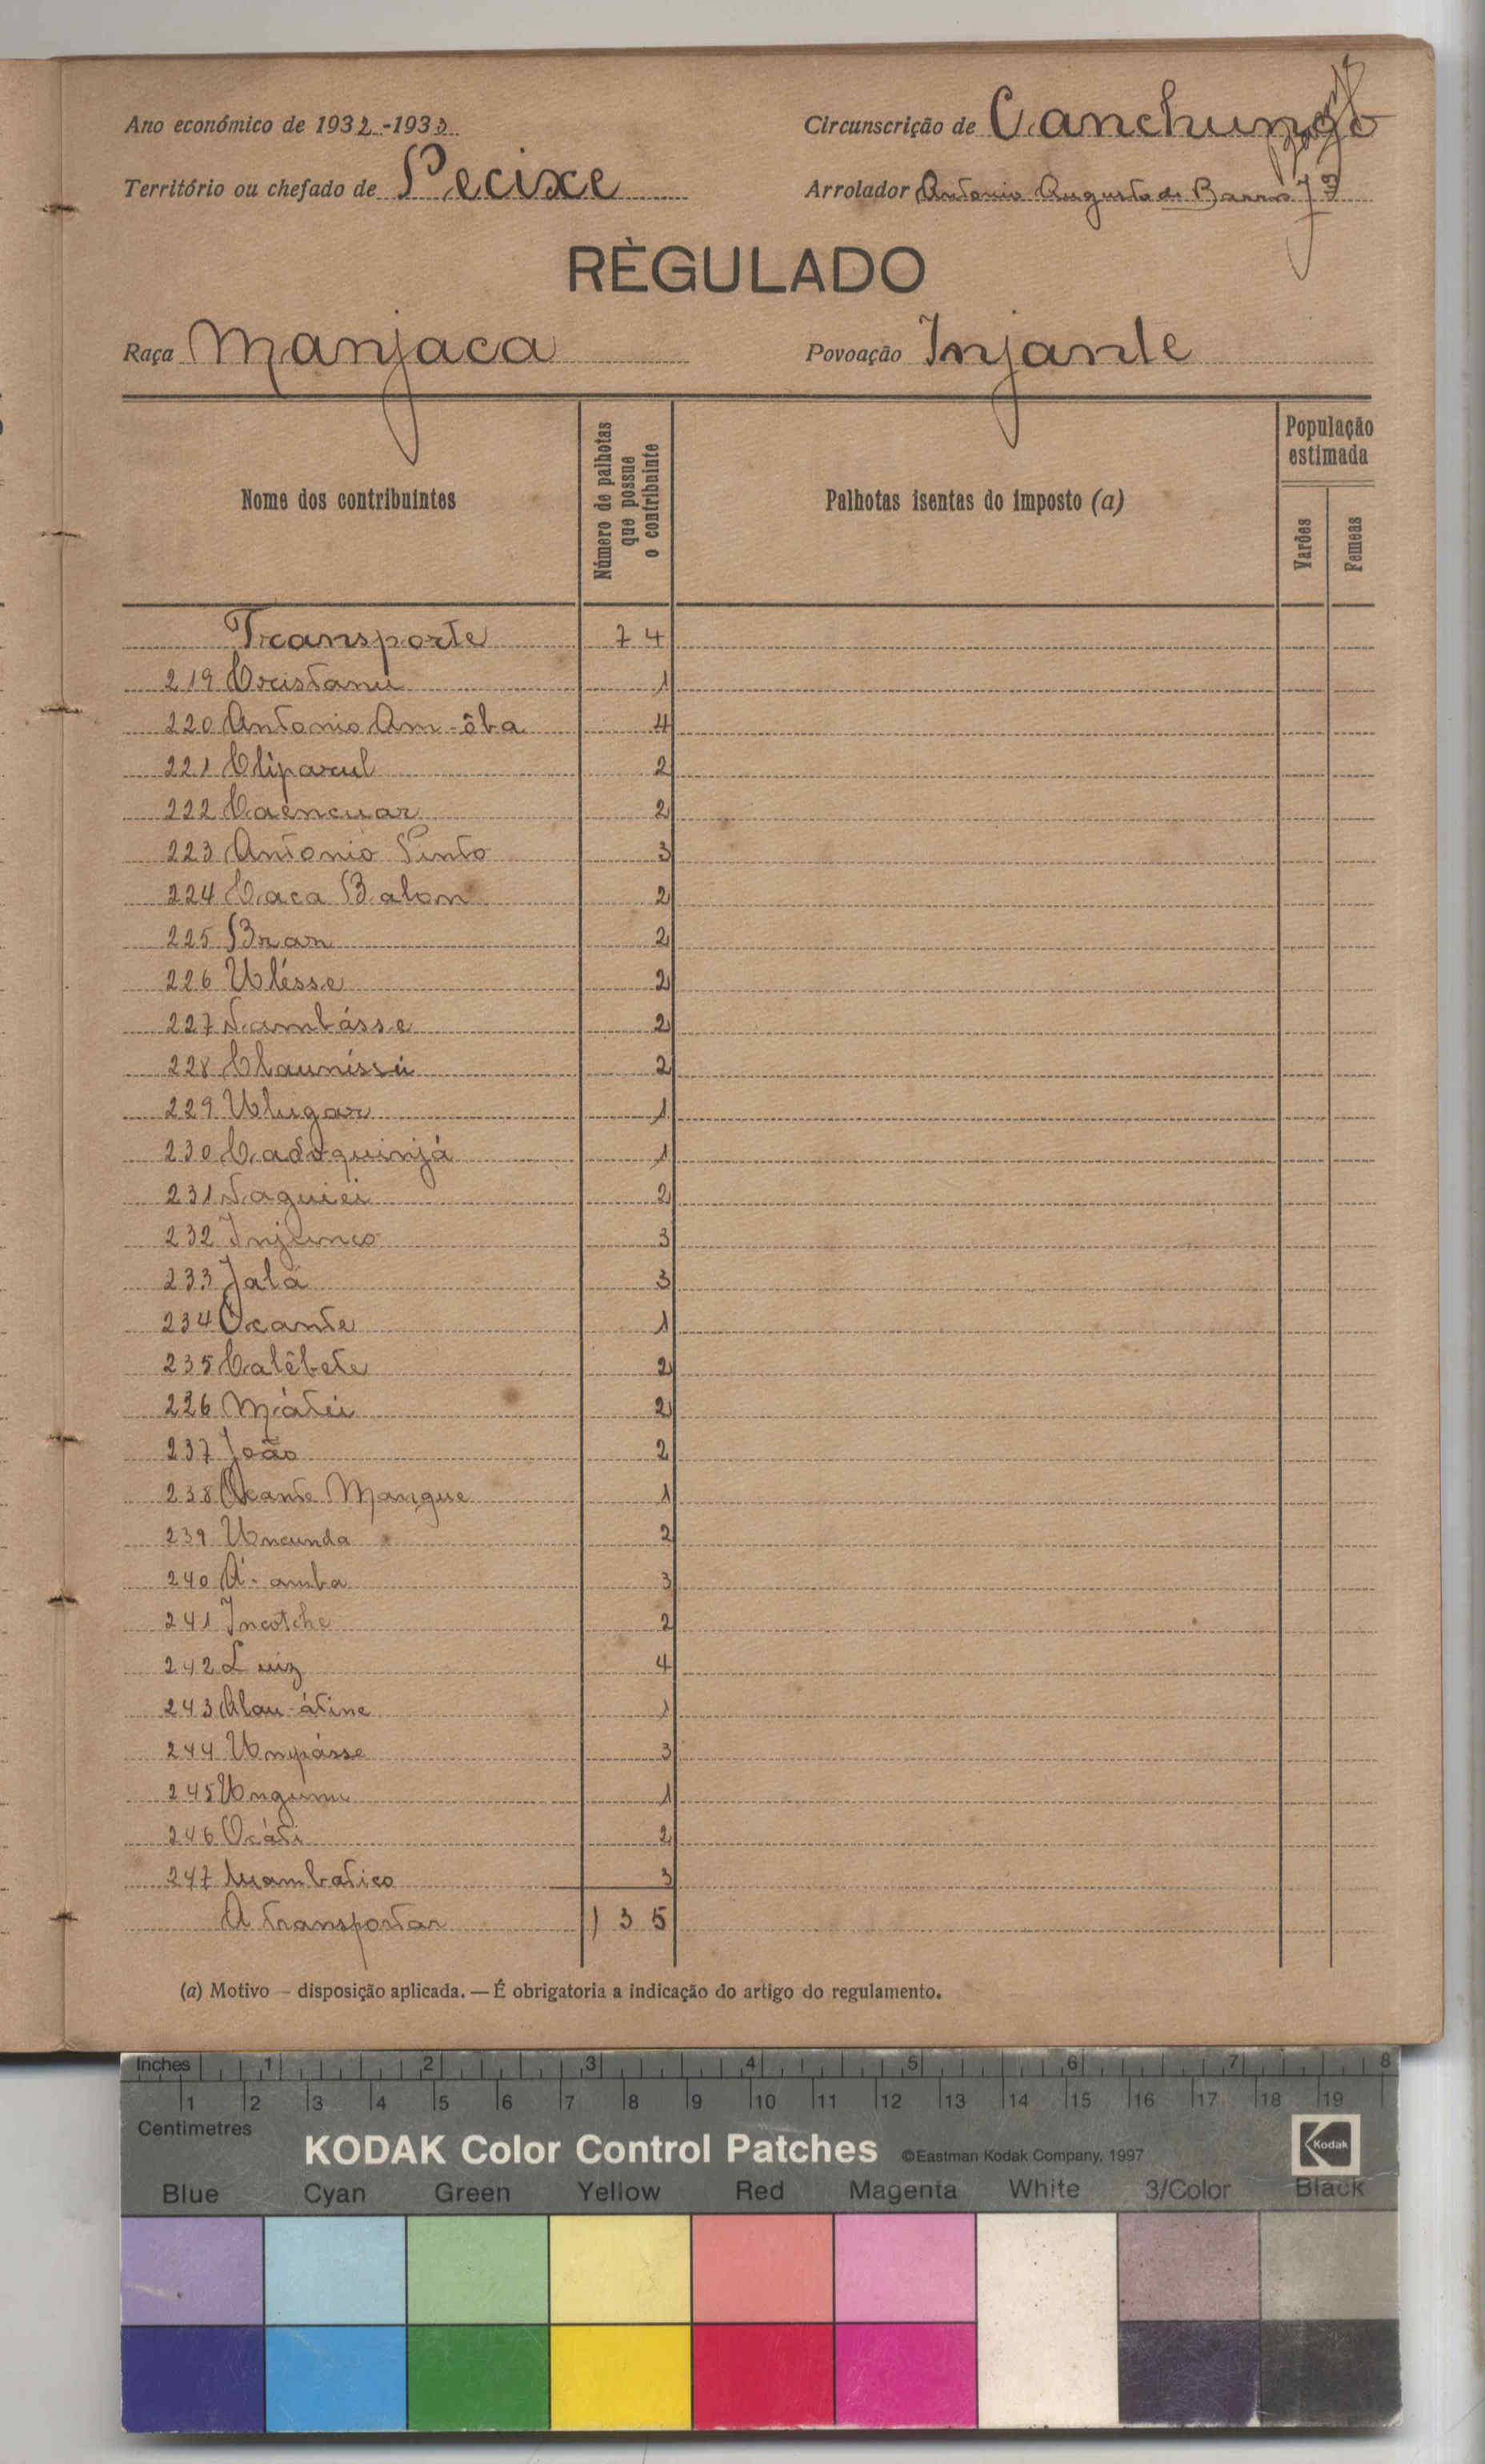 Ano económico de 1932-1933
Circunscrição de Canchungo
Território ou chefado de Pecixe
Arrolador Antonio Augusto de Barros
RÈGULADO
Raça Manjaca
Povoação Injante
Nome dos contribuintes
Número de palhotas que possue o contribuinte
Palhotas isentas do imposto (a)
População estimada
Varões
Femeas
Transporte 74
219 Cristanu 1
220 Antonio Am-ôba 4
221 Cliparul 2
222 Caencuar 2
223 Antonio Pinto 3
224 Caca Balom 2
225 Bran 2
226 Ulésse 2
227 Nambásse 2
228 Claunissú 2
229 Ulugar 1
230 Cadoquinjá 1
231 Naguiei 2
232 Injunco 3
233 Jalá 3
234 Ocante 1
235 Calêbete 2
226 Mátei 2
237 João 2
238 Ocante Mangue 1
239 Uncunda 2
240 Á-amba 3
241 Incotche 2
242 Luiz 4
243 Alau-átine 1
244 Umpásse 3
245 Ungumu 1
246 Ocáti 2
247 Muambatico 3
A transportar 135
(a) Motivo — disposição aplicada. — É obrigatoria a indicação do artigo do regulamento.
Inches 1 2 3 4 5 6 7 8
1 2 3 4 5 6 7 8 9 10 11 12 13 14 15 16 17 18 19
Centimetres
KODAK Color Control Patches ©Eastman Kodak Company, 1997 Kodak
Blue Cyan Green Yellow Red Magenta White 3/Color Black